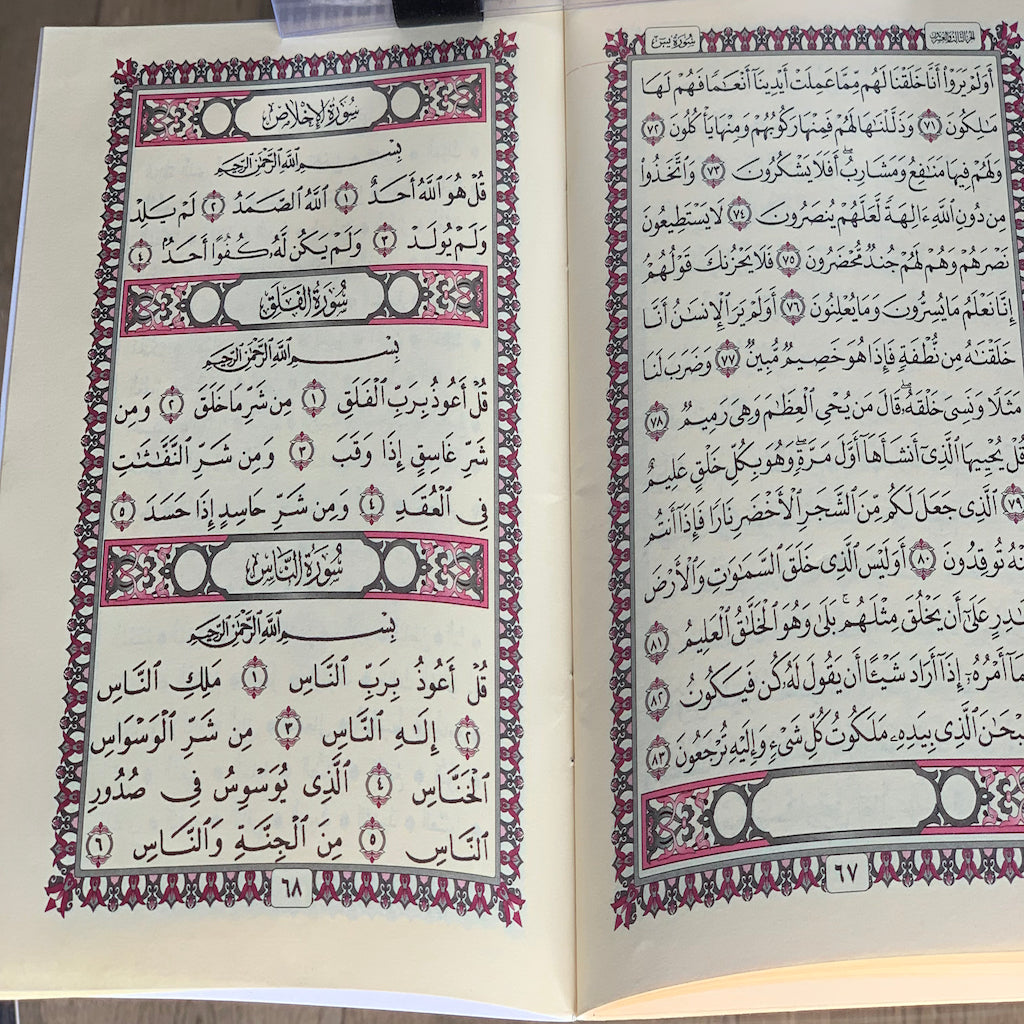 سورة يس
الجزء الثالث والعشرون
أَوَلَمْ يَرَوْا۟ أَنَّا خَلَقْنَا لَهُم مِّمَّا عَمِلَتْ أَيْدِينَآ أَنْعَـٰمًا فَهُمْ لَهَا
مَـٰلِكُونَ ٧١ وَذَلَّلْنَـٰهَا لَهُمْ فَمِنْهَا رَكُوبُهُمْ وَمِنْهَا يَأْكُلُونَ ٧٢
وَلَهُمْ فِيهَا مَنَـٰفِعُ وَمَشَارِبُ ۖ أَفَلَا يَشْكُرُونَ ٧٣ وَٱتَّخَذُوا۟
مِن دُونِ ٱللَّهِ ءَالِهَةً لَّعَلَّهُمْ يُنصَرُونَ ٧٤ لَا يَسْتَطِيعُونَ
نَصْرَهُمْ وَهُمْ لَهُمْ جُندٌ مُّحْضَرُونَ ٧٥ فَلَا يَحْزُنكَ قَوْلُهُمْ ۘ
إِنَّا نَعْلَمُ مَا يُسِرُّونَ وَمَا يُعْلِنُونَ ٧٦ أَوَلَمْ يَرَ ٱلْإِنسَـٰنُ أَنَّا
خَلَقْنَـٰهُ مِن نُّطْفَةٍ فَإِذَا هُوَ خَصِيمٌ مُّبِينٌ ٧٧ وَضَرَبَ لَنَا
مَثَلًا وَنَسِىَ خَلْقَهُۥ ۖ قَالَ مَن يُحْىِ ٱلْعِظَـٰمَ وَهِىَ رَمِيمٌ ٧٨
قُلْ يُحْيِيهَا ٱلَّذِىٓ أَنشَأَهَآ أَوَّلَ مَرَّةٍ ۖ وَهُوَ بِكُلِّ خَلْقٍ عَلِيمٌ
٧٩ ٱلَّذِى جَعَلَ لَكُم مِّنَ ٱلشَّجَرِ ٱلْأَخْضَرِ نَارًا فَإِذَآ أَنتُم
نْهُ تُوقِدُونَ ٨٠ أَوَلَيْسَ ٱلَّذِى خَلَقَ ٱلسَّمَـٰوَٰتِ وَٱلْأَرْضَ
ـٰدِرٍ عَلَىٰٓ أَن يَخْلُقَ مِثْلَهُم ۚ بَلَىٰ وَهُوَ ٱلْخَلَّـٰقُ ٱلْعَلِيمُ ٨١
مَآ أَمْرُهُۥٓ إِذَآ أَرَادَ شَيْـًٔا أَن يَقُولَ لَهُۥ كُن فَيَكُونُ ٨٢
بْحَـٰنَ ٱلَّذِى بِيَدِهِۦ مَلَكُوتُ كُلِّ شَىْءٍ وَإِلَيْهِ تُرْجَعُونَ ٨٣
٦٧
سُورَةُ الإِخْلَاصِ
بِسْمِ ٱللَّهِ ٱلرَّحْمَـٰنِ ٱلرَّحِيمِ
قُلْ هُوَ ٱللَّهُ أَحَدٌ ١ ٱللَّهُ ٱلصَّمَدُ ٢ لَمْ يَلِدْ
وَلَمْ يُولَدْ ٣ وَلَمْ يَكُن لَّهُۥ كُفُوًا أَحَدٌۢ ٤
سُورَةُ الفَلَقِ
بِسْمِ ٱللَّهِ ٱلرَّحْمَـٰنِ ٱلرَّحِيمِ
قُلْ أَعُوذُ بِرَبِّ ٱلْفَلَقِ ١ مِن شَرِّ مَا خَلَقَ ٢ وَمِن
شَرِّ غَاسِقٍ إِذَا وَقَبَ ٣ وَمِن شَرِّ ٱلنَّفَّـٰثَـٰتِ
فِى ٱلْعُقَدِ ٤ وَمِن شَرِّ حَاسِدٍ إِذَا حَسَدَ ٥
سُورَةُ النَّاسِ
بِسْمِ ٱللَّهِ ٱلرَّحْمَـٰنِ ٱلرَّحِيمِ
قُلْ أَعُوذُ بِرَبِّ ٱلنَّاسِ ١ مَلِكِ ٱلنَّاسِ
٢ إِلَـٰهِ ٱلنَّاسِ ٣ مِن شَرِّ ٱلْوَسْوَاسِ
ٱلْخَنَّاسِ ٤ ٱلَّذِى يُوَسْوِسُ فِى صُدُورِ
ٱلنَّاسِ ٥ مِنَ ٱلْجِنَّةِ وَٱلنَّاسِ ٦
٦٨